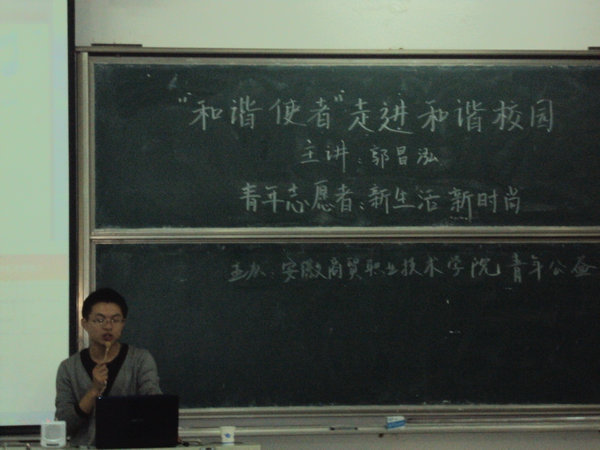 "和谐使者"走进和谐校园
主讲：郭昌泓
青年志愿者：新生活 新时尚
主办：安徽商贸职业技术学院 青年公益